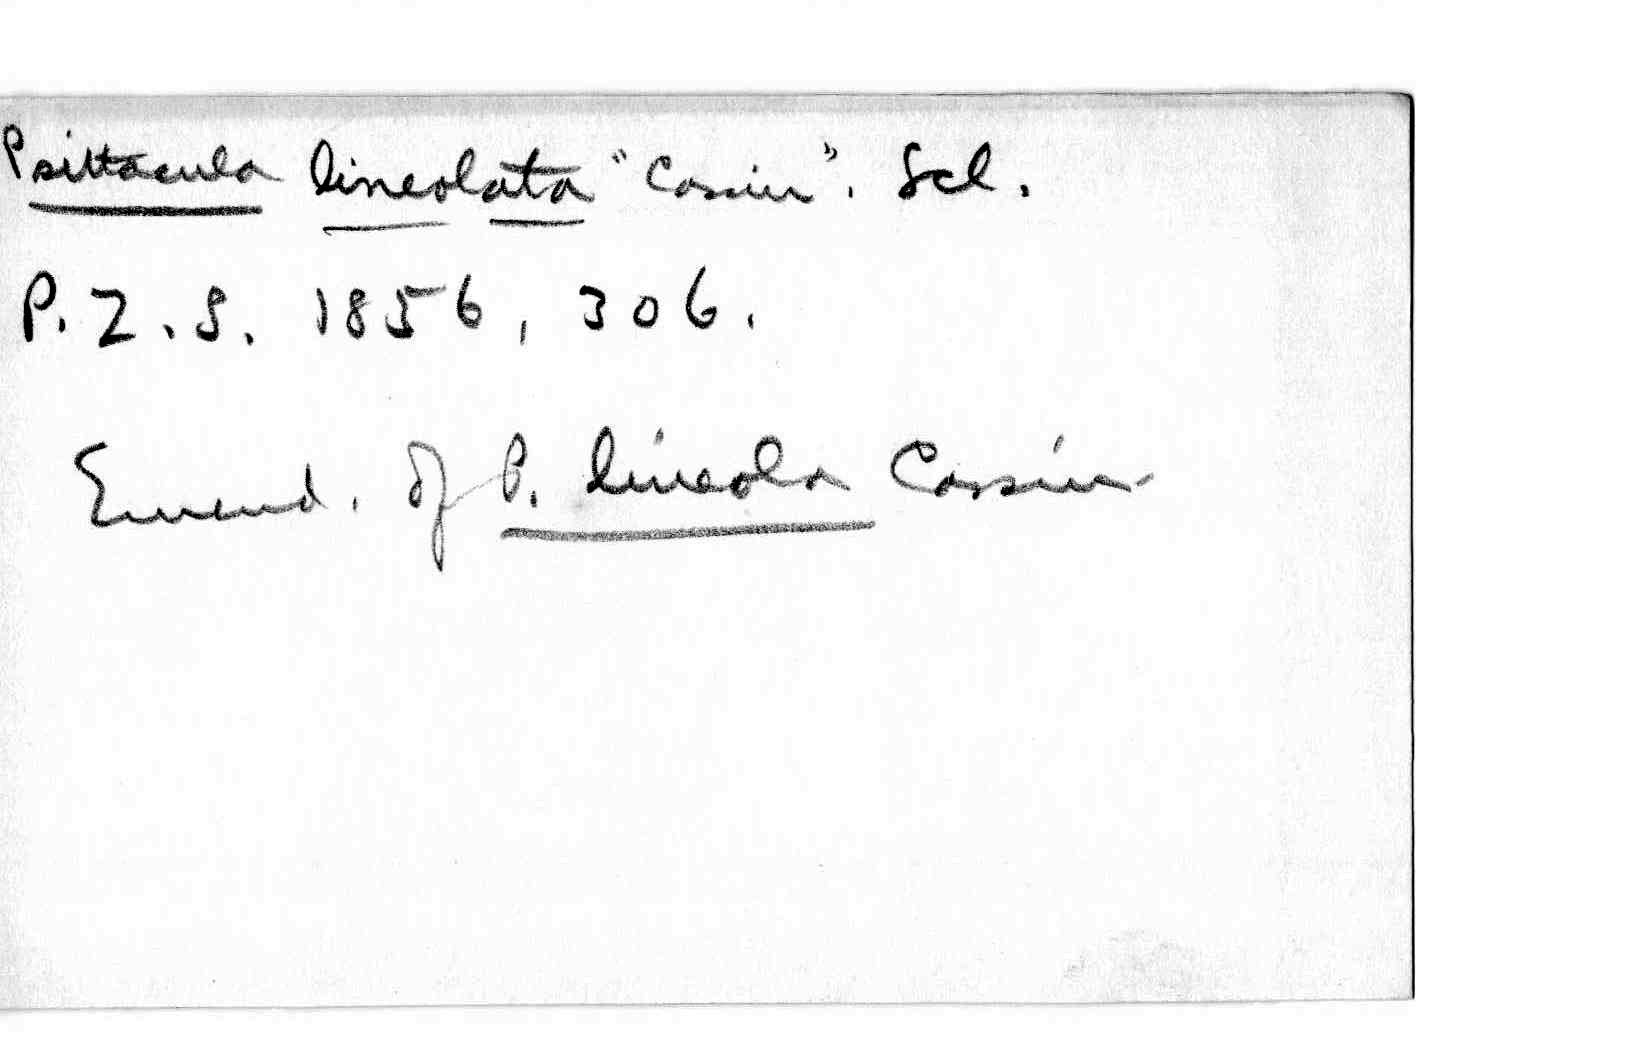 Psittacula lineolata "Cassin". Scl.
P. Z. S. 1856, 306.
Emend. of P. lineola Cassin